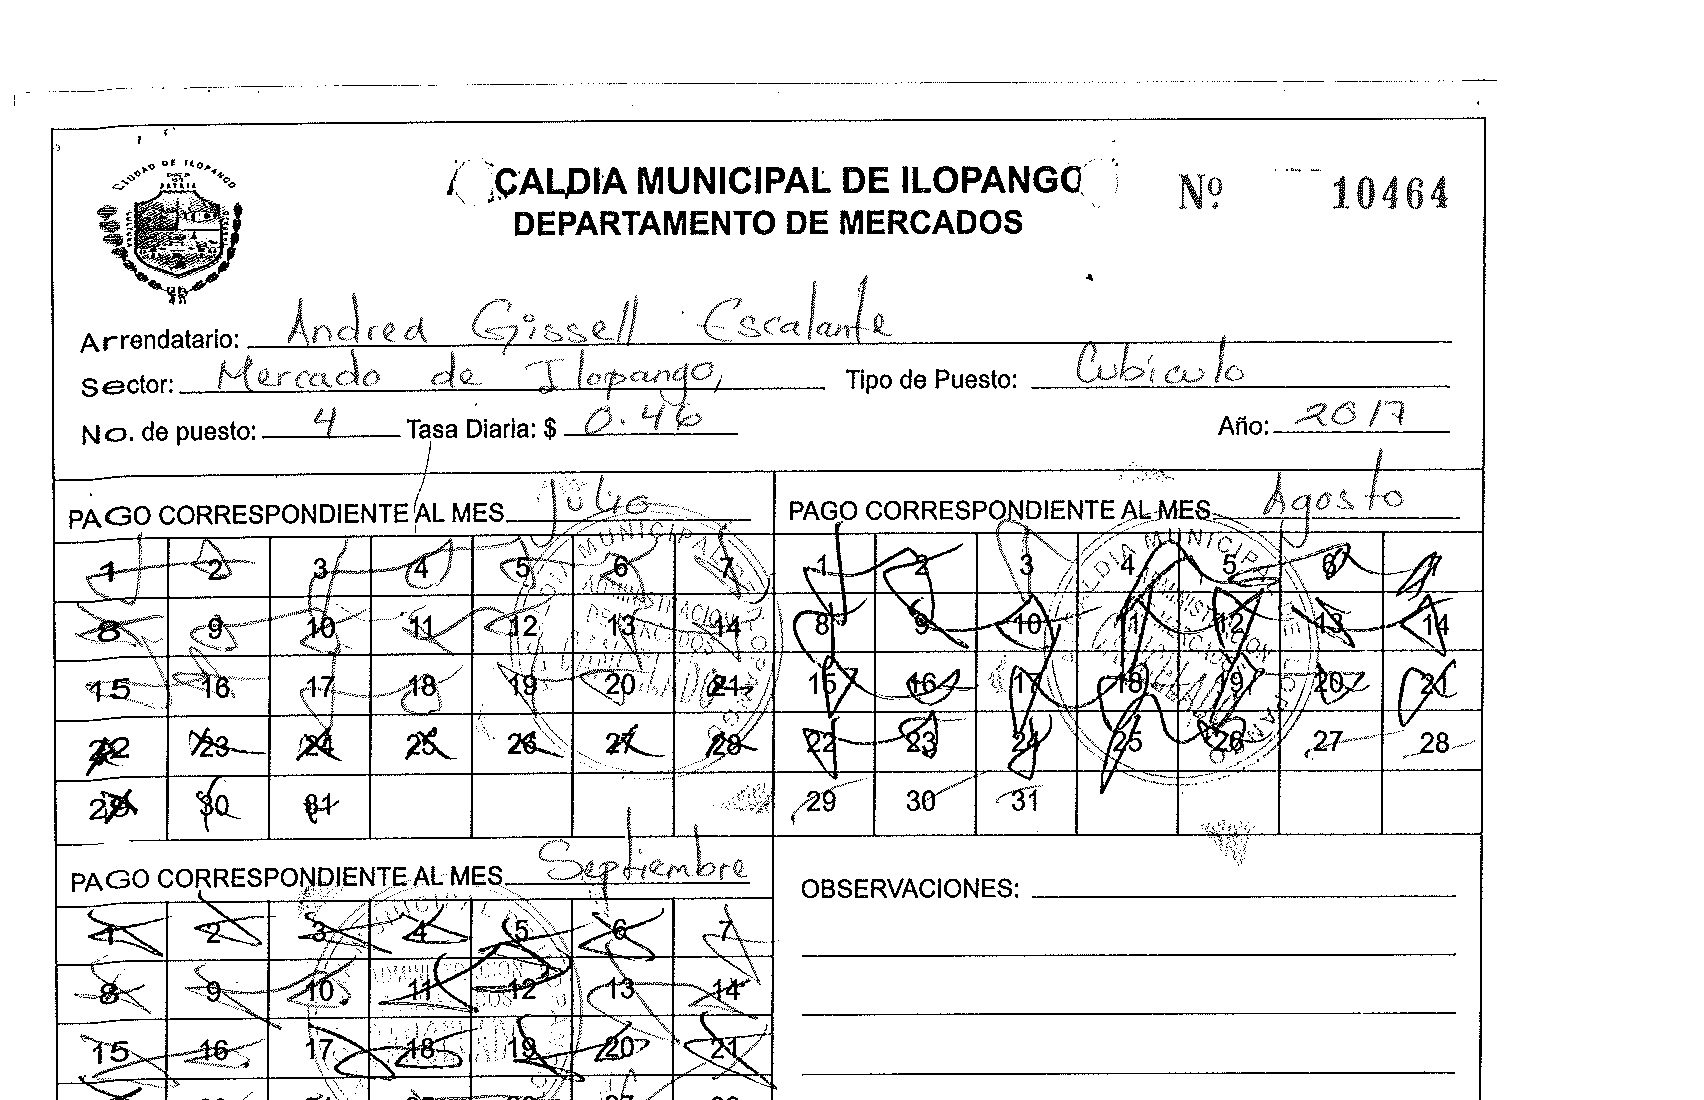 CIUDAD DE ILOPANGO
CALDIA MUNICIPAL DE ILOPANGO
DEPARTAMENTO DE MERCADOS
Nº 10464
Arrendatario: Andrea Gissell Escalante
Sector: Mercado de Ilopango, Tipo de Puesto: Cubiculo
No. de puesto: 4 Tasa Diaria: $ 0.46 Año: 2017
PAGO CORRESPONDIENTE AL MES Julio
1 2 3 4 5 6 7
8 9 10 11 12 13 14
15 16 17 18 19 20 21
22 23 24 25 26 27 28
29 30 31
PAGO CORRESPONDIENTE AL MES Agosto
1 2 3 4 5 6 7
8 9 10 11 12 13 14
15 16 17 18 19 20 21
22 23 24 25 26 27 28
29 30 31
PAGO CORRESPONDIENTE AL MES Septiembre
1 2 3 4 5 6 7
8 9 10 11 12 13 14
15 16 17 18 19 20 21
OBSERVACIONES: